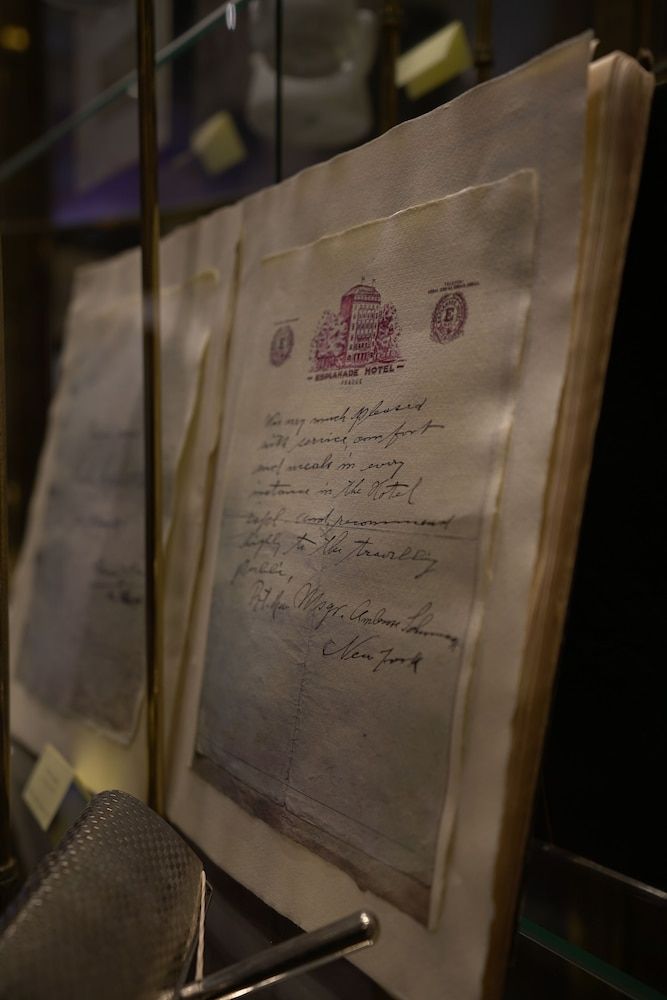 E
E
- ESPLANADE HOTEL -
PRAGUE
very much pleased
with service, comfort
and meals in every
instance in the Hotel
and recommend
highly to the travelling
Msgr. Ambrose
New York